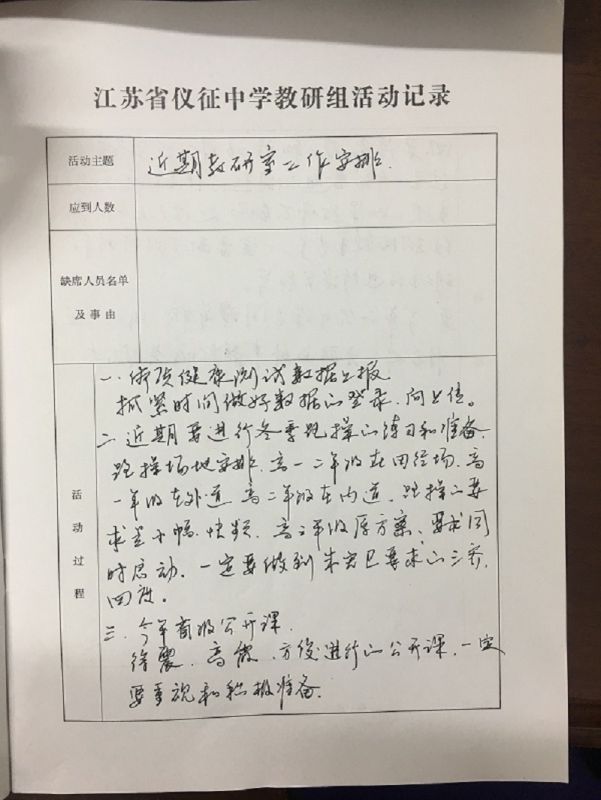 江苏省仪征中学教研组活动记录
活动主题
近期教研室工作安排.
应到人数
缺席人员名单
及事由
活动过程
一.体质健康测试数据上报
抓紧时间做好数据的登录.向上传。
二.近期要进行冬季跑操的练习和准备.
跑操场地安排.高一二年级在田径场.高
一年级在外道.高二年级在内道.跑操的要
求是小幅.快频.高三年级原方案.要求同
时启动.一定要做到朱实已要求的三齐.
四度。
三.今年有公开课.
徐震.高俊.方俊进行的公开课.一定
要重视和积极准备.